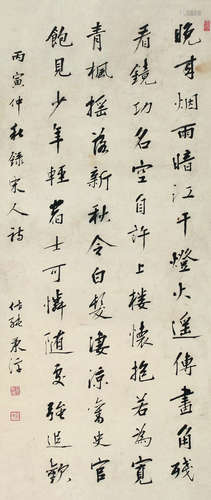 晚来烟雨暗江干燈火遥傳畫角殘
看鏡功名空自許上樓懷抱若為寬
青楓摇落新秋令白髮凄涼舊史官
飽見少年輕者士可憐随處強追歡
丙寅仲秋録宋人詩